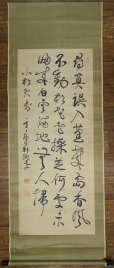 尋真誤入蓬萊島香風
不動松花老採芝何處未
歸來白雲滿地無人掃